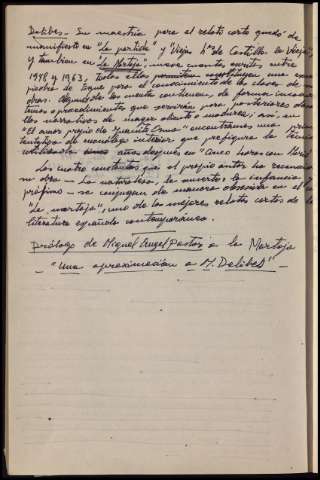 Delibes.- Su maestría para el relato corto quedó de
manifiesto en "La partida" y Viejas hªs de Castilla la Vieja,
y también en "La Mortaja", nueve cuentos escritos entre
1948 y 1963, todos ellos permiten una
piedra de toque para el conocimiento de la clave de su
obras. Algunos de los cuentos contienen, de forma
temas o procedimientos que servirán para posteriores
llos narrativos de mayor aliento o madurez; así, en
"El amor propio de Juanito Osuna" encontramos una
tentativa de monólogo interior que prefigura la técnica
utilizada años después en "Cinco horas con Mario
Las cuatro constantes que el propio autor ha reconoci
no obra — La naturaleza, la muerte, la infancia
prójimo — se conjugan de manera obsesiva en el
"La mortaja", uno de los mejores relatos cortos de
literatura española contemporánea.
Prólogo de Miguel Angel Pastor a la Mortaja
- "Una aproximación a M. Delibes" -